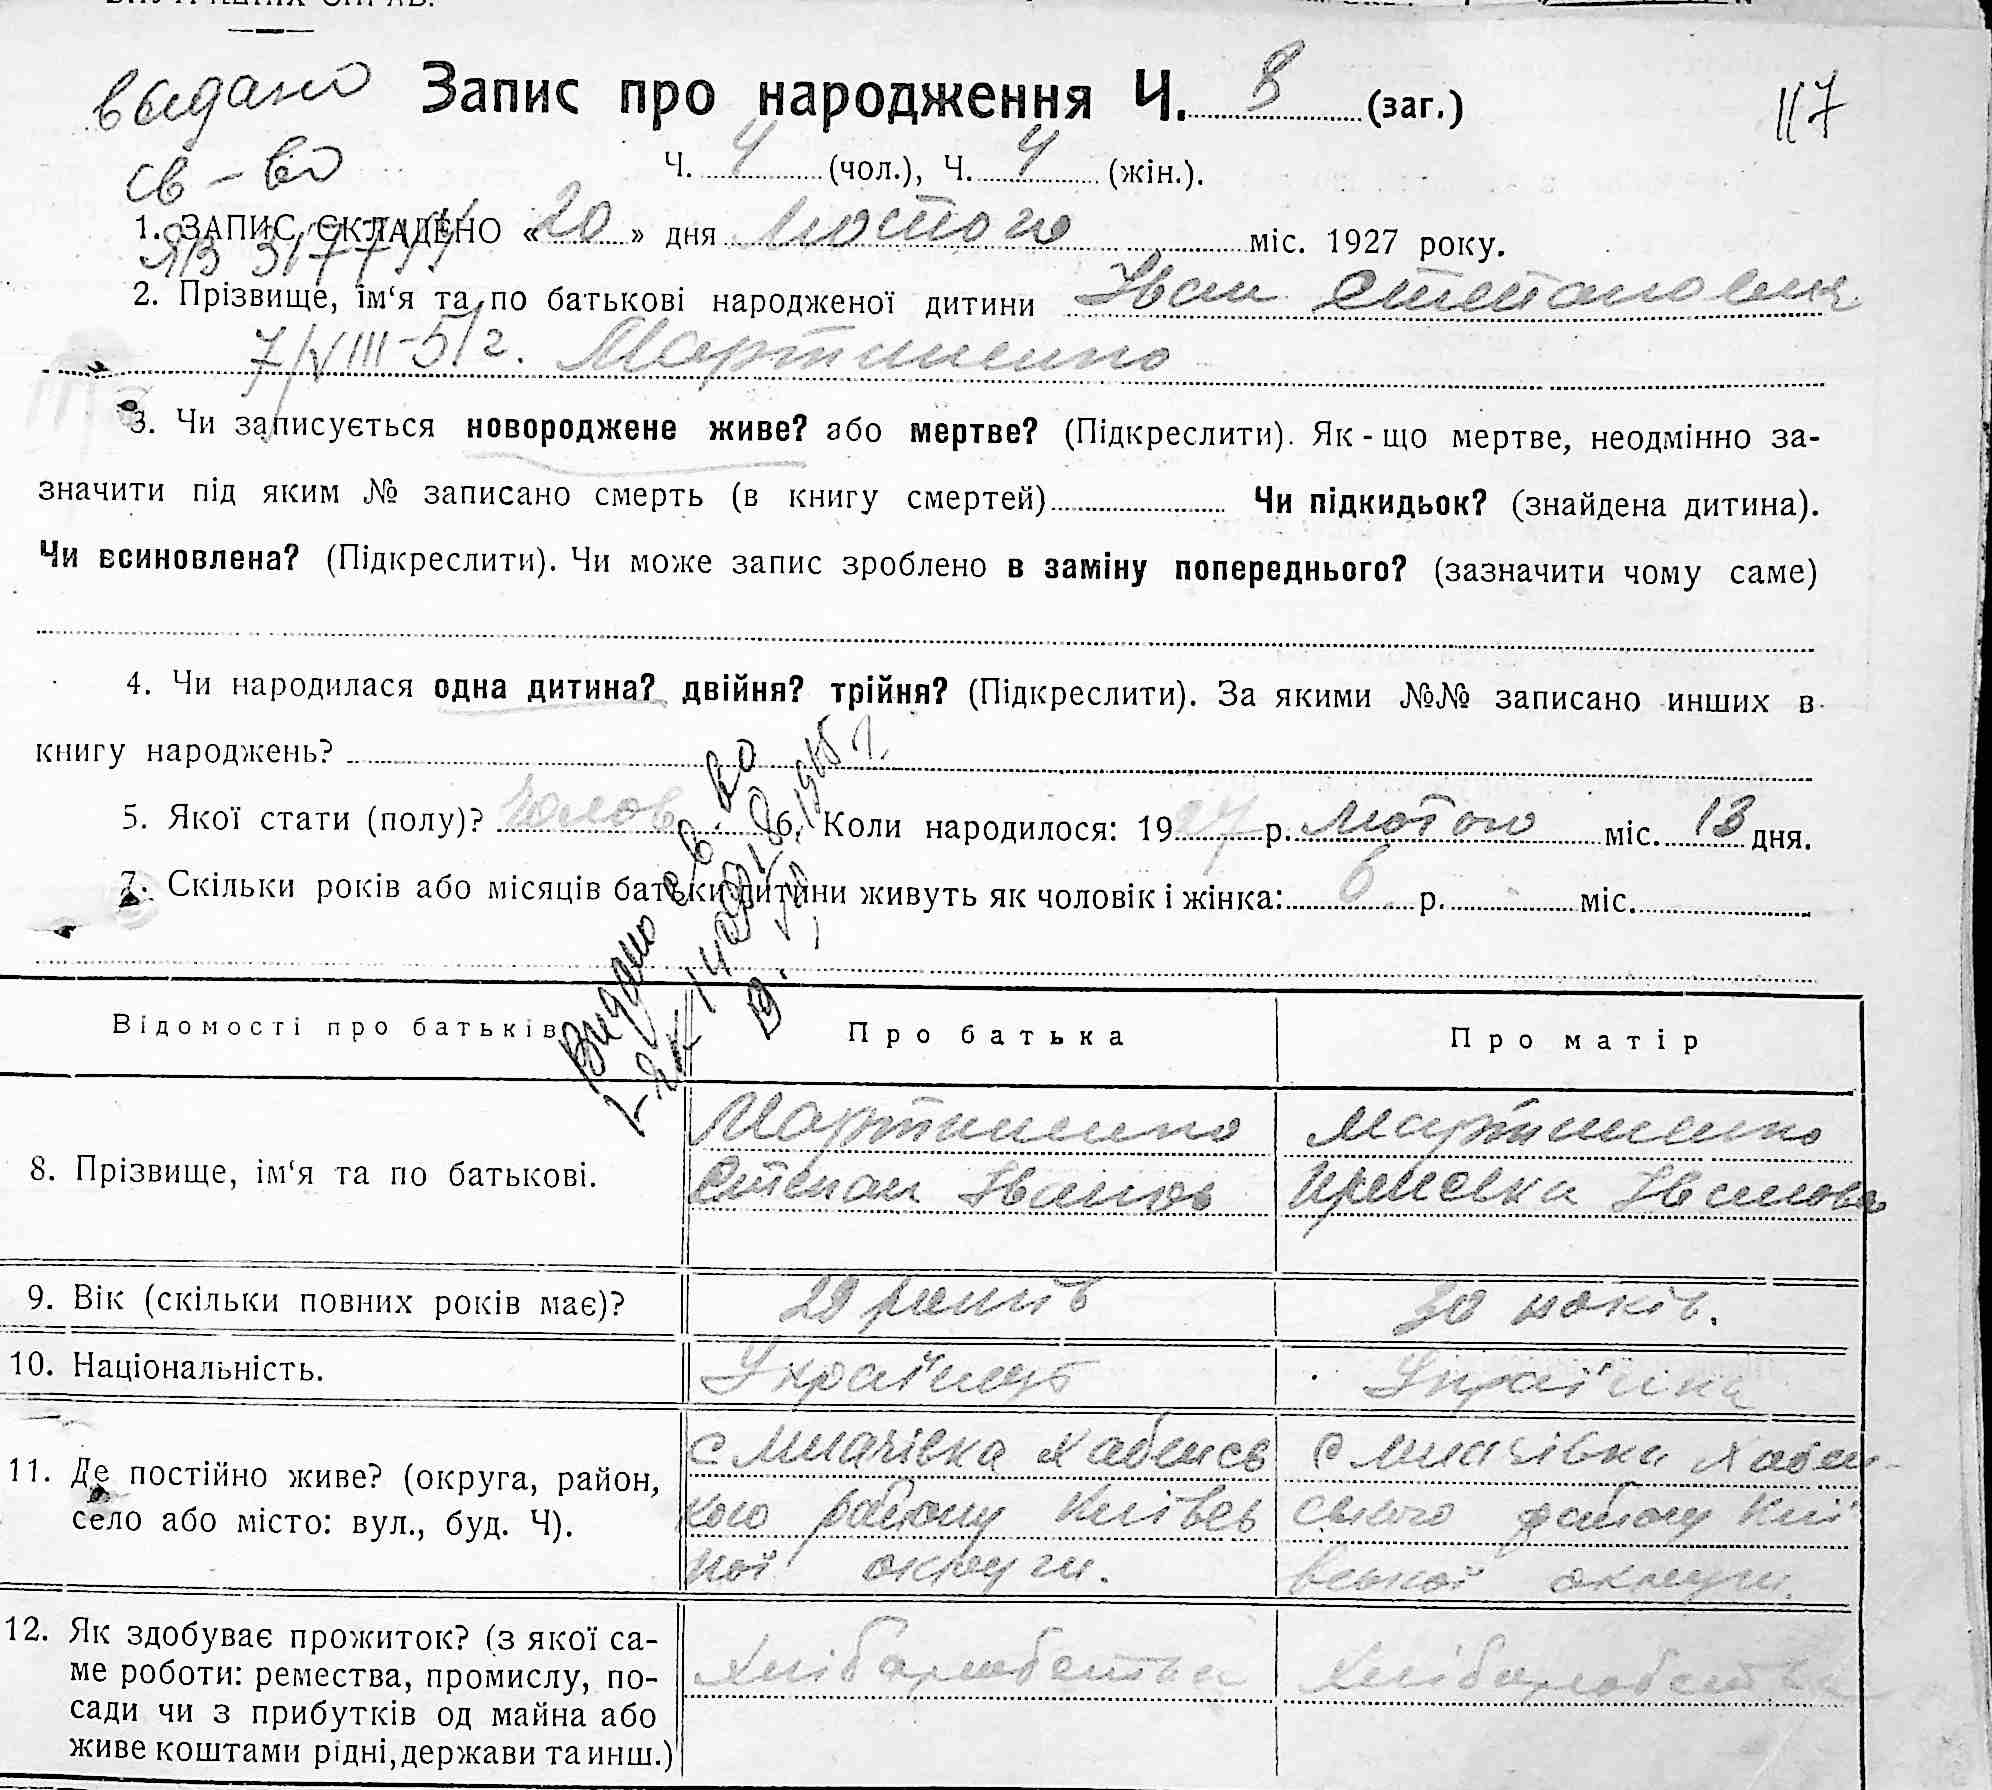 видано
св-во
ЯВ
7/VIII-51 г.
Запис про народження Ч. 8 (заг.)
117
Ч. 4 (чол.), Ч. 4 (жін.).
1. ЗАПИС СКЛАДЕНО « 20 » дня Лютого міс. 1927 року.
2. Прізвище, ім‘я та по батькові народженої дитини Іван Степанович
Мартиненко
3. Чи записується новороджене живе? або мертве? (Підкреслити). Як-що мертве, неодмінно за-
значити під яким № записано смерть (в книгу смертей) Чи підкидьок? (знайдена дитина).
Чи всиновлена? (Підкреслити). Чи може запис зроблено в заміну попереднього? (зазначити чому саме)
4. Чи народилася одна дитина? двійня? трійня? (Підкреслити). За якими №№ записано инших в
книгу народжень?
5. Якої стати (полу)? Чолов 6. Коли народилося: 1927 р. лютого міс. 13 дня.
7. Скільки років або місяців батьки дитини живуть як чоловік і жінка: 6 р. - міс.
Видано св-во
Відомості про батьків Про батька Про матір
8. Прізвище, ім‘я та по батькові.
Мартиненко
Степан Іванов
Мартиненко
Іванова
9. Вік (скільки повних років має)? 29 років 30 років.
10. Національність. Українець Українка
11. Де постійно живе? (округа, район,
село або місто: вул., буд. Ч).
с Милачівка Хабенсь
кого району Київсь
кої округи.
с Милачівка Хабен-
ського району Киї
вської округи.
12. Як здобуває прожиток? (з якої са-
ме роботи: ремества, промислу, по-
сади чи з прибутків од майна або
живе коштами рідні, держави та инш.)
Хліборобства
Хліборобства